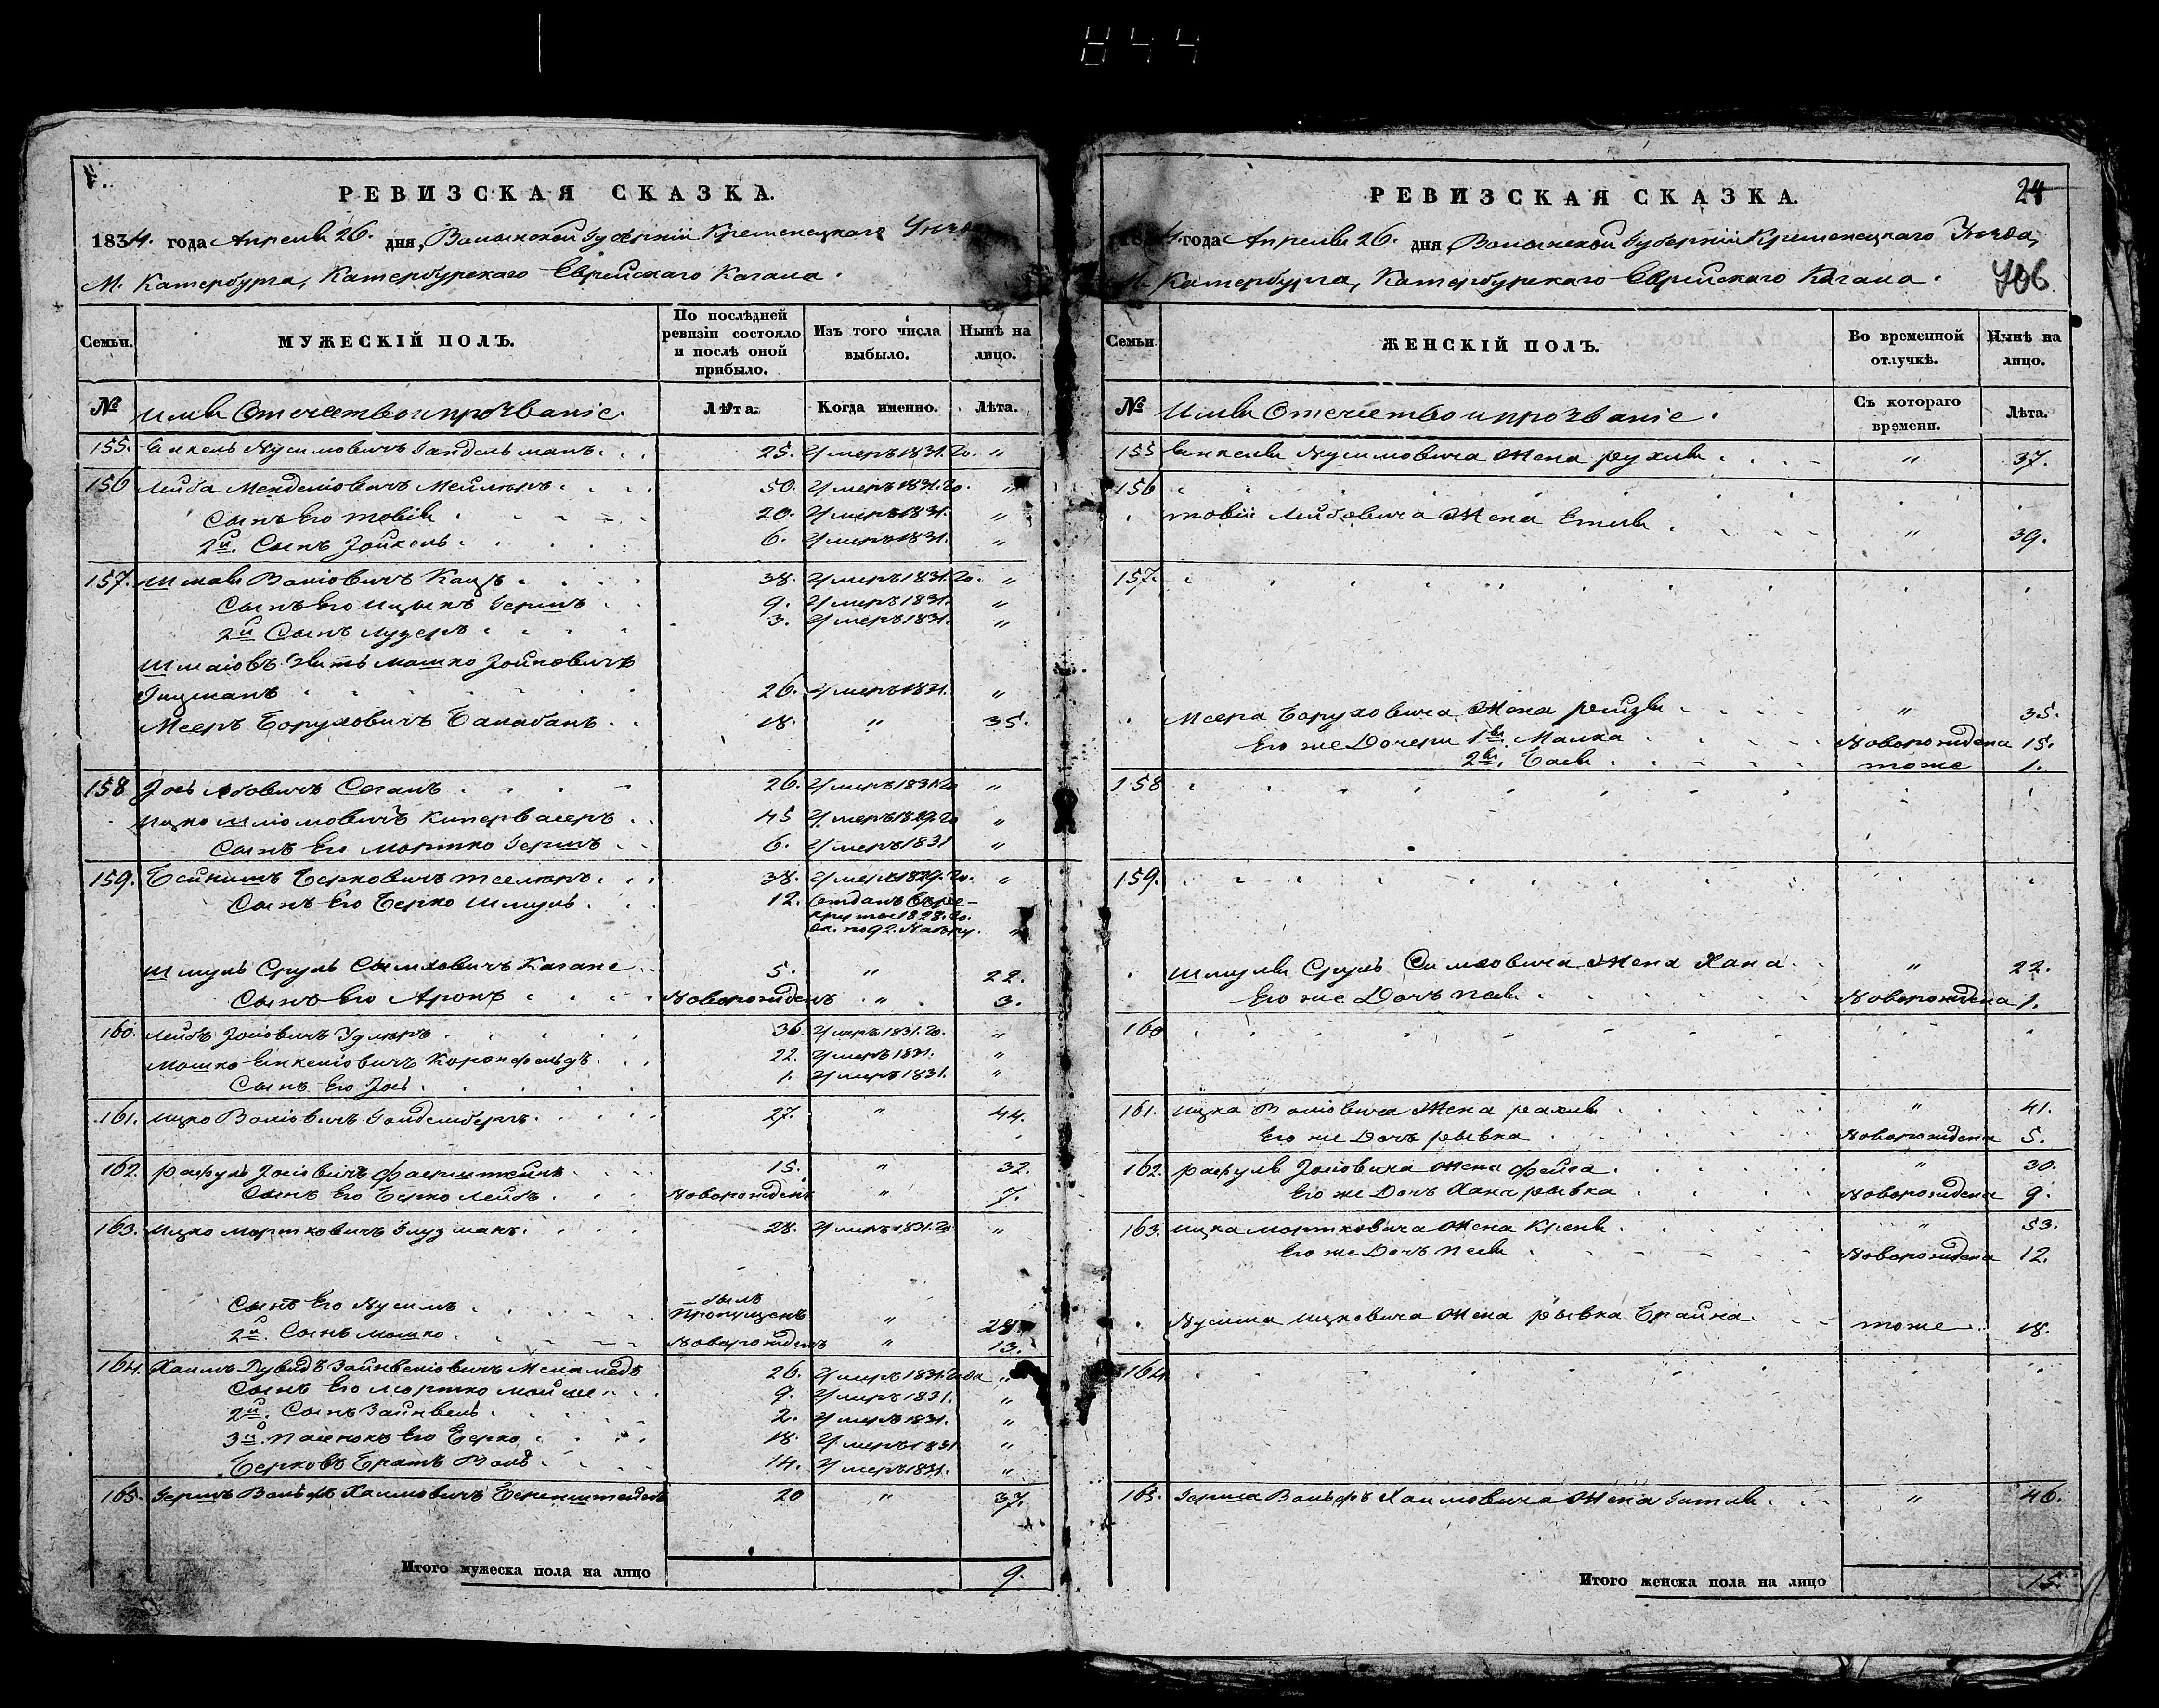 844
РЕВИЗСКАЯ СКАЗКА.
1834. года Апреля 26. дня, Волынской Губерніи Кременецкаго Уезда
М. Катербурга, Катербурскаго Еврейскаго Кагала.
Семьи. МУЖЕСКІЙ ПОЛЪ. По послѣдней ревизіи состояло и послѣ оной прибыло. Изъ того числа выбыло. Нынѣ на лицо.
№ Имя Отечество и прозваніе. Лѣта. Когда именно. Лѣта.
155. Янкель Нусимовичъ Гандельманъ. 25. Умеръ 1831. го. "
156 Лейба Менделіовичъ 50. Умеръ 1831. го. "
Сынъ Его Товія 20. Умеръ 1831. "
2й. Сынъ Іойхель. 6. Умеръ 1831. "
157. Шмая Воліовичъ Кацъ 38. Умеръ 1831. го. "
Сынъ Его Ицыкъ Гершъ 9. Умеръ 1831. "
2й Сынъ Лузеръ 3. Умеръ 1831. "
Шмаіовъ Зять Мошко Іойновичъ
26. Умеръ 1831. "
Мееръ Боруховичъ Балабанъ 18. " 35.
158 Іось Сеганъ 26. Умеръ 1831 го "
Ицко Шліомовичъ Кипервасеръ 45 Умеръ 1829. го "
Сынъ Его Мортко Гершъ 6. Умеръ 1831 "
159. Бейнишъ Берковичъ 38. Умеръ 1829. го. "
Сынъ Его Берко Шмуль 12. Отданъ въ ре-
круты 1828. го.
по 92. Набору. "
Шмуль Сруль Сымховичъ Кагане 5. " 22.
Сынъ Его Аронъ Новорожденъ " 3.
160. Лейбъ Іосіовичъ 36. Умеръ 1831. го. "
Мошко Янкеліовичъ Коронфельдъ 22. Умеръ 1831. "
Сынъ Его Іось 1. Умеръ 1831. "
161. Ицко Воліовичъ Гольденбергъ. 27. " 44.
162. Рафуль Іосіовичъ Фаерштейнъ 15. " 32.
Сынъ Его Берко Лейбъ Новорожденъ " 7.
163. Ицко Мортковичъ Глузманъ. 28. Умеръ 1831. го "
Сынъ Его Нусимъ былъ
пропущенъ " 28
2й. Сынъ Мошко. Новорожденъ " 13.
164. Хаимъ Дувидъ Зайнвеліовичъ Меламедъ 26. Умеръ 1831. года "
Сынъ Его Мортко Мойше 9. Умеръ 1831. "
2й. Сынъ Зайнвель 2. Умеръ 1831. "
3й. Пасенокъ Его Берко 18. Умеръ 1831 "
Берковъ Братъ Волъ 14. Умеръ 1831. "
165. Гершъ Вольфъ Хаимовичъ Беренштейнъ 20 " 37.
Итого мужеска пола на лицо 9.
24
РЕВИЗСКАЯ СКАЗКА.
1834. года Апреля 26. дня, Волынской Губерніи Кременецкаго Уезда,
М. Катербурга, Катербурскаго Еврейскаго Кагала.
706
Семьи ЖЕНСКІЙ ПОЛЪ. Во временной отлучкѣ. Нынѣ на лицо.
№ Имя Отечество и прозваніе. Съ котораго времени. Лѣта.
155 Янкеля Нусимовича Жена Рухля " 37.
156
Товіи Лейбовича Жена Етля " 39.
157.
Меера Боруховича Жена Рейзя " 35.
Его же Дочери 1я. Малка Новорождена 15.
2я. Бася тоже 1.
158
159.
Шмуля Сруль Симховича Жена Хана " 22.
Его же Дочъ Песя Новорождена 1.
160
161. Ицка Воліовича Жена Рахля " 41.
Его же Дочъ Рывка Новорождена 5.
162. Рафуля Іосіовича Жена Фейга " 30.
Его же Дочъ Хана Рывка Новорождена 9.
163. Ицка Мортковича Жена Креня " 53.
Его же Дочъ Песя Новорождена 12.
Нусима Ицковича Жена Рывка Брайна тоже 18.
164
165. Герша Вольфъ Хаимовича Жена Гитля " 46.
Итого женска пола на лицо 15